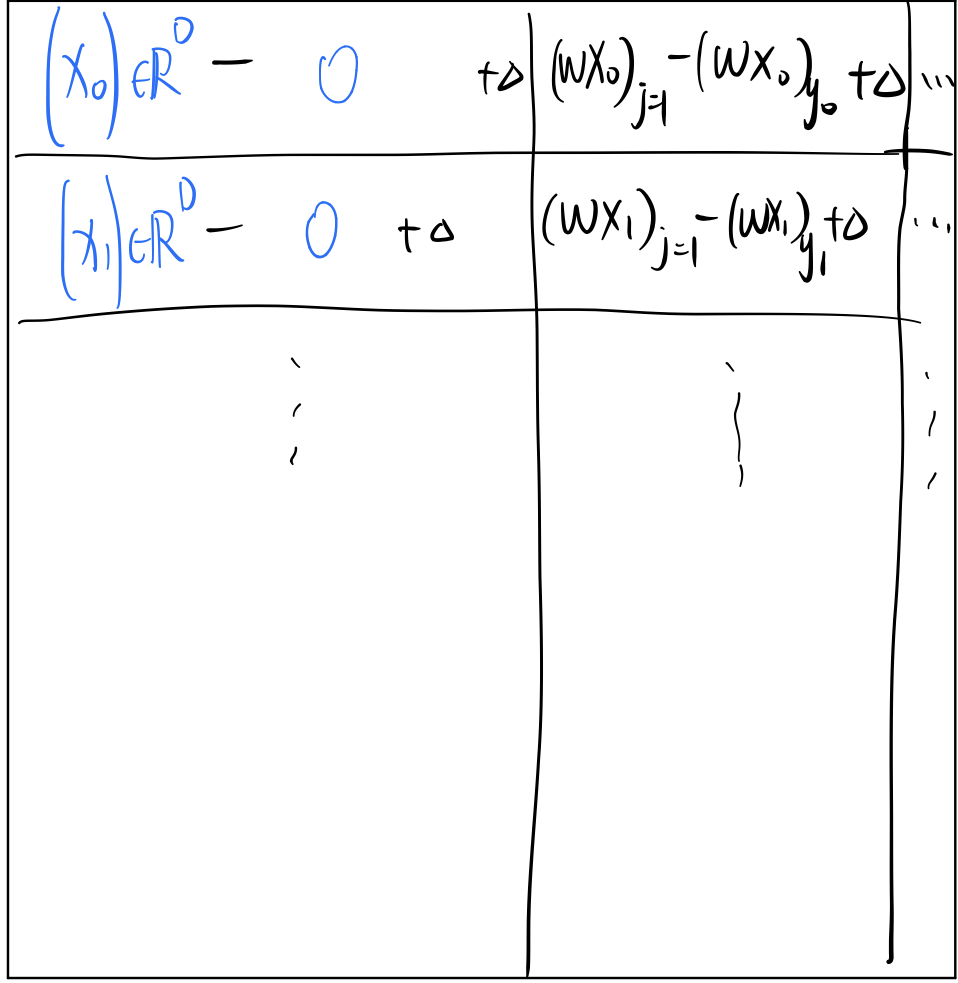 (X₀)∈ℝᴰ − 0 +Δ (WX₀)ⱼ₌₁ − (WX₀)y₀ +Δ ...
(X₁)∈ℝᴰ − 0 +Δ (WX₁)ⱼ₌₁ − (WX₁)y₁ +Δ ...